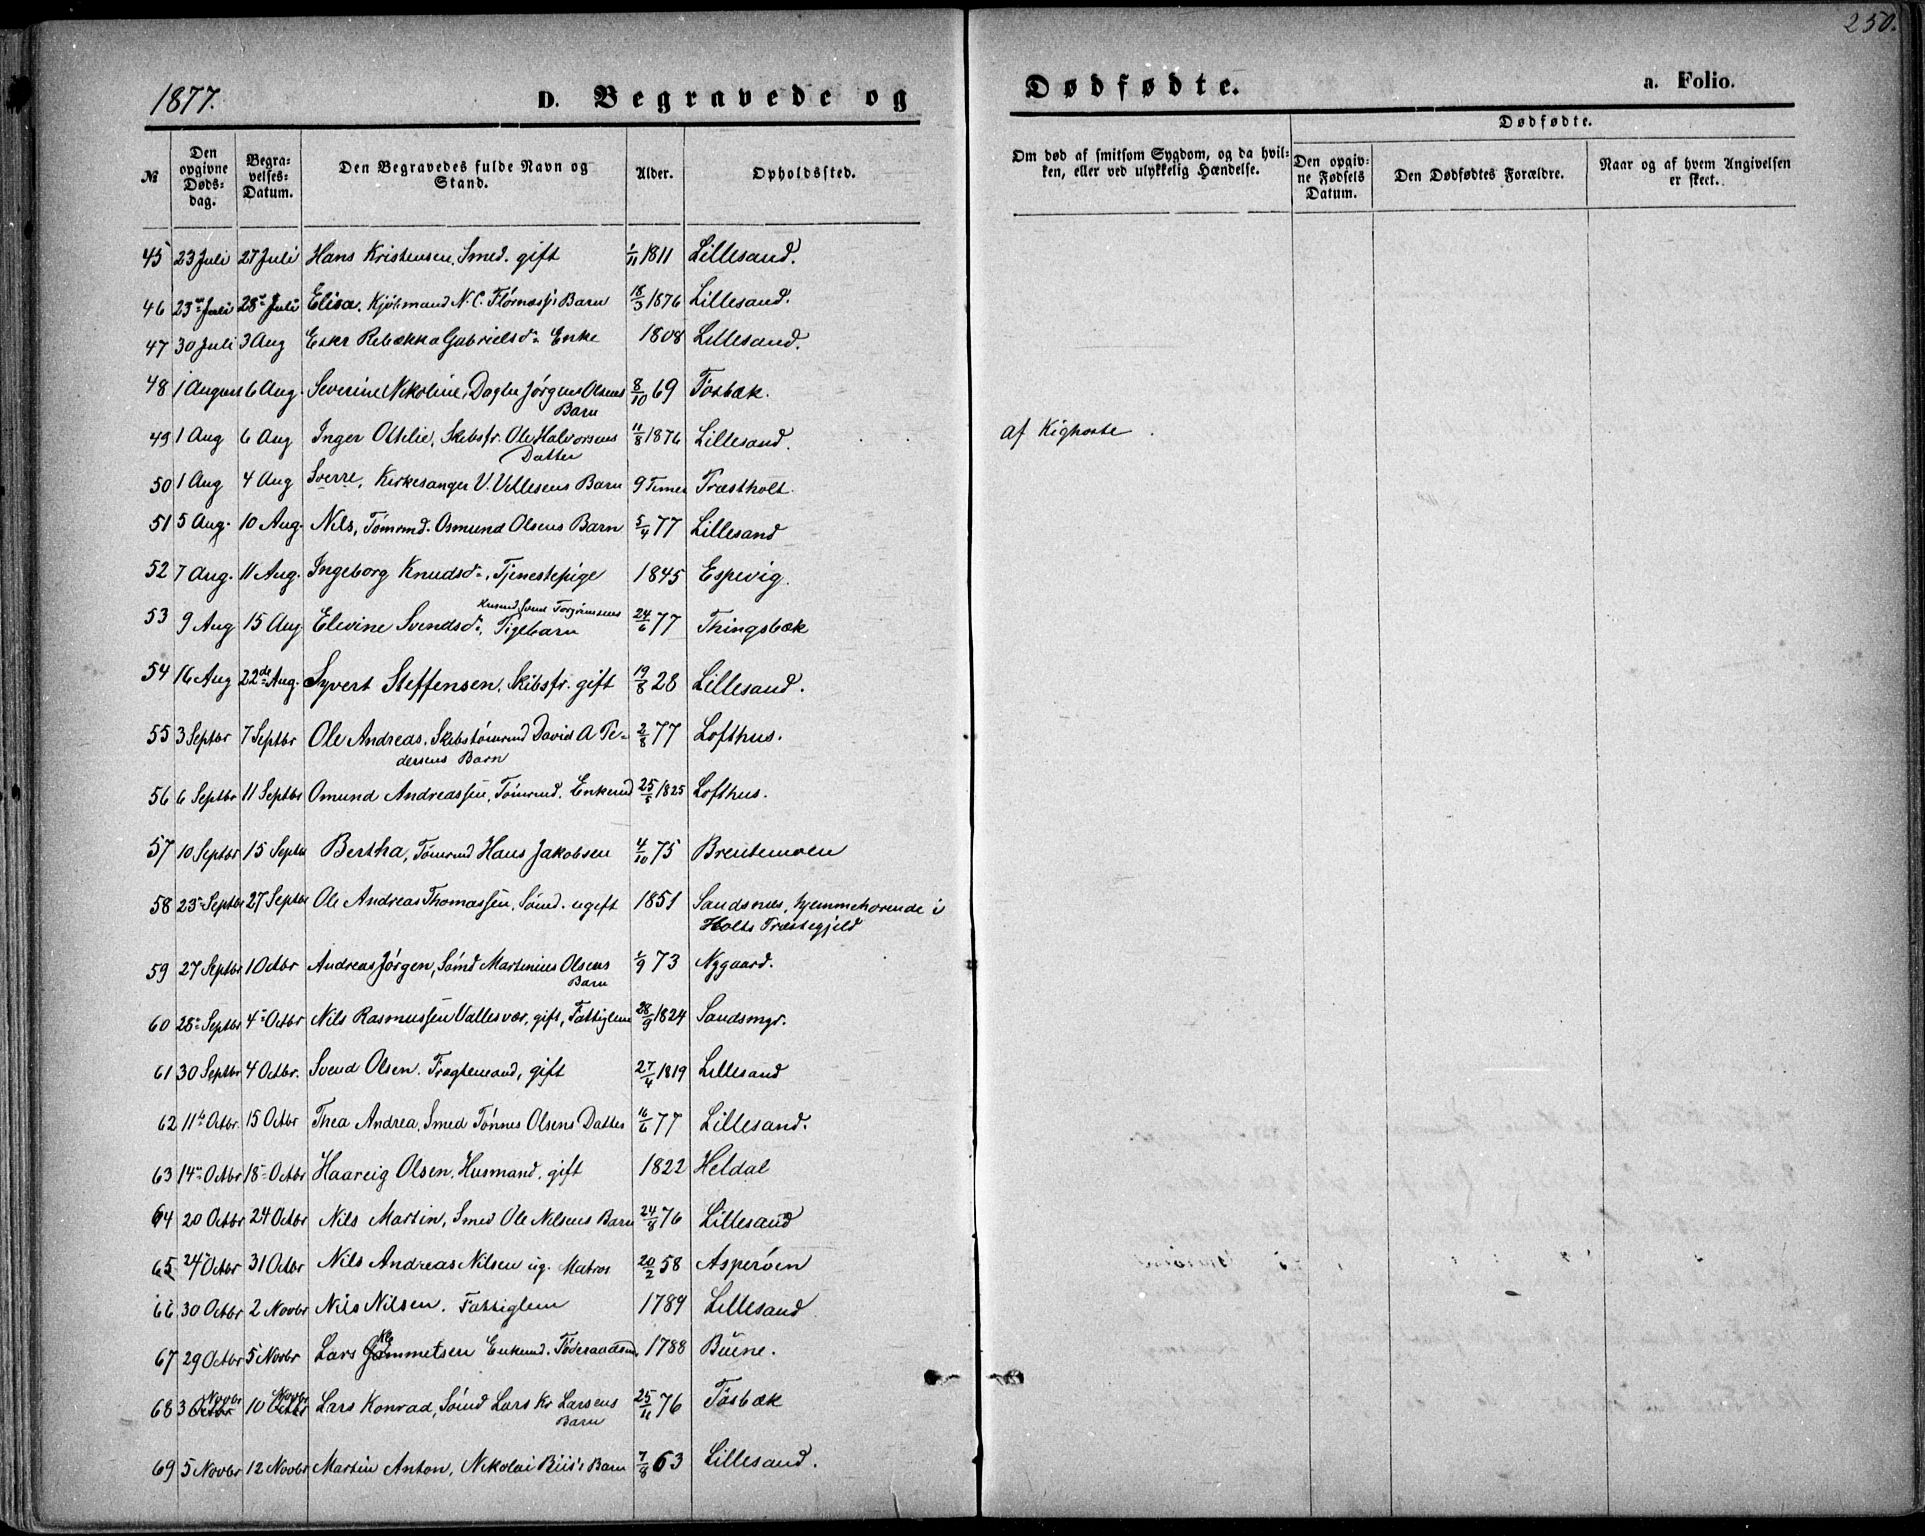 250.
1877.
D. Begravede og
Dødfødte.
a. Folio.
№
Den opgivne Døds-dag.
Begra-velses-Datum.
Den Begravedes fulde Navn og Stand.
Alder.
Opholdssted.
Om død af smitsom Sygdom, og da hvil-ken, eller ved ulykkelig Hændelse.
Dødfødte.
Den opgiv-ne Fødsels Datum.
Den Dødfødtes Forældre.
Naar og af hvem Angivelsen er skeet.
45 23 Juli 27 Juli Hans Kristensen, Smed. gift 1/11 1811 Lillesand.
46 23de Juli 28de Juli Elisa, Kjøbmand N. C. Barn 18/3 1876 Lillesand.
47 30 Juli 3 Aug Rebækka Gabrielsd. Enke 1808 Lillesand.
48 1 August 6 Aug. Severine Nikoline, Jørgen Olsens 8/10 69 Tosbæk.
Barn
49 1 Aug 6 Aug Inger Otilie, Skibsfr. Ole Halvorsens 11/8 1876 Lillesand. af Kighoste
Datter
50 1 Aug 4 Aug Sverre, Kirkesanger V. Vellesens Barn 9 Timer Præstholt.
51 5 Aug. 10 Aug. Nils, Tømrmd. Osmund Olsens Barn 5/4 77 Lillesand
52 7 Aug. 11 Aug. Ingeborg Knudsd., Tjenestepige 1845 Espevig.
Husmd. Svend Torgrimsens
53 9 Aug 15 Aug Elevine Svendsd., Pigebarn 24/6 77 Thingsbæk
54 16 Aug 22de Aug. Syvert Steffensen, Skibsfr. gift 19/8 28 Lillesand.
55 3 Septbr 7 Septbr Ole Andreas, Skibstømrmd David A Pe- 2/8 77 Lofthus.
dersens Barn
56 6 Septbr 11 Septbr Omund Andreassen, Tømrmd. Enkemd 25/5 1825 Lofthus.
57 10 Septbr 15 Septbr Bertha, Tømrmd Hans Jakobsen 4/10 75 Brentemoen
58 23de Septbr 27 Septbr Ole Andreas Thomassen, Sømd. ugift 1851 Sandsnes, hjemmehørende i
Holts Præstegjeld
59 27 Septbr 1 Octbr Andreas Jørgen, Sømd Martinius Olsens 1/9 73 Nygaard.
Barn
60 28de Septbr 4de Octbr Nils Rasmussen Vallesvær, gift, Fattiglem 28/9 1824 Sandsmyr.
61 30 Septbr 4 Octbr. Svend Olsen. Fragtemand, gift 27/4 1819 Lillesand
62 11te Octbr. 15 Octbr Thea Andrea, Smed Tønnes Olsens Datter 16/6 77 Lillesand.
63 14de Octbr 18de Octbr Haareig Olsen, Husmand, gift 1822 Heldal
64 20 Octbr 24 Octbr Nils Martin, Smed Ole Nilsens Barn 24/8 76 Lillesand
65 24de Octbr 31 Octbr Nils Andreas Nilsen ug. Matros 20/2 58 Asperøen
66 30 Octbr 2 Novbr Nils Nilsen. Fattiglem 1789 Lillesand
67 29 Octbr 5 Novbr Lars Enkemd. Føderaadsm. 1788 Büene.
68 3 Novbr 10 Novbr Lars Konrad, Sømd Lars Kr Larsens 25/11 76 Tosbæk
Barn
69 5 Novbr 12 Novbr Martin Anton, Nikolai Barn 7/8 63 Lillesand.